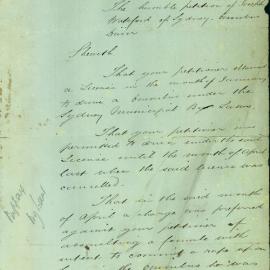 The humble petition of Joseph
Watsford of Sydney, Omnibus
Driver
Sheweth
That your petitioner obtained
a License in the month of January
to drive a Omnibus under the
Sydney Municipal By Laws.
That your petitioner was
permitted to drive under the said
License until the month of April
last when the said license was
cancelled.
That in the said month
of April a charge was preferred
against your petitioner of
assaulting a female with
intent to commit a rape
the Omnibus he was